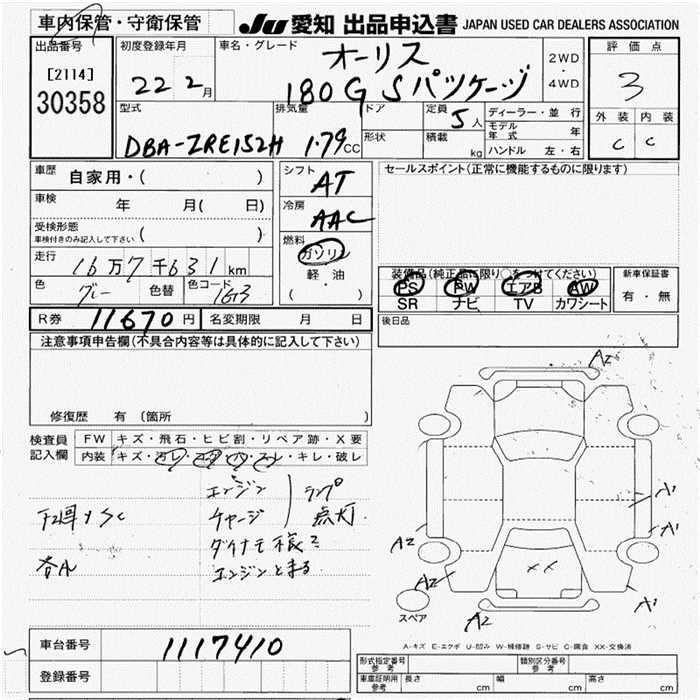 車内保管・守衛保管
JU 愛知 出品申込書 JAPAN USED CAR DEALERS ASSOCIATION
出品番号
[2114]
30358
初度登録年月
22 2月
車名・グレード
オーリス
180G Sパッケージ
2WD
・
4WD
評価点
3
外装 内装
C C
型式
DBA-ZRE152H
排気量
1.79 CC
ドア
形状
定員
5人
積載
kg
ディーラー・並行
モデル年式 年
ハンドル 左・右
車歴
自家用・( )
車検
年 月( 日)
受検形態
車検付きのみ記入して下さい ( )
走行
16万7千631km
色
グレー
色替
色コード
1G3
シフト
AT
冷房
AAC
燃料
ガソリン
軽・油
( ・ )
セールスポイント(正常に機能するものに限ります)
装備品(純正品に限り○をつけてください)
PS PW エアB AW
SR ナビ TV カワシート
新車保証書
有・無
R券 11670円
名変期限 月 日
後日品
注意事項申告欄(不具合内容等は具体的に記入して下さい)
修復歴 有(箇所 )
検査員
記入欄
FW キズ・飛石・ヒビ割・リペア跡・X要
内装 キズ・汚レ・コゲ・穴・スレ・キレ・破レ
エンジン
チャージ
ランプ
点灯.
ダイナモ様ミ
エンジンとまる
下廻りSC
各A
A2
A1
A1
A2
A2
XX
A1
A2
スペア
A-キズ E-エクボ U-凹み W-補修跡 S-サビ C-腐食 XX-交換済
車台番号
1117410
登録番号
形式指定番号
参考
類別区分番号
参考
車庫証明用
参考
長さ cm 幅 cm 高さ cm